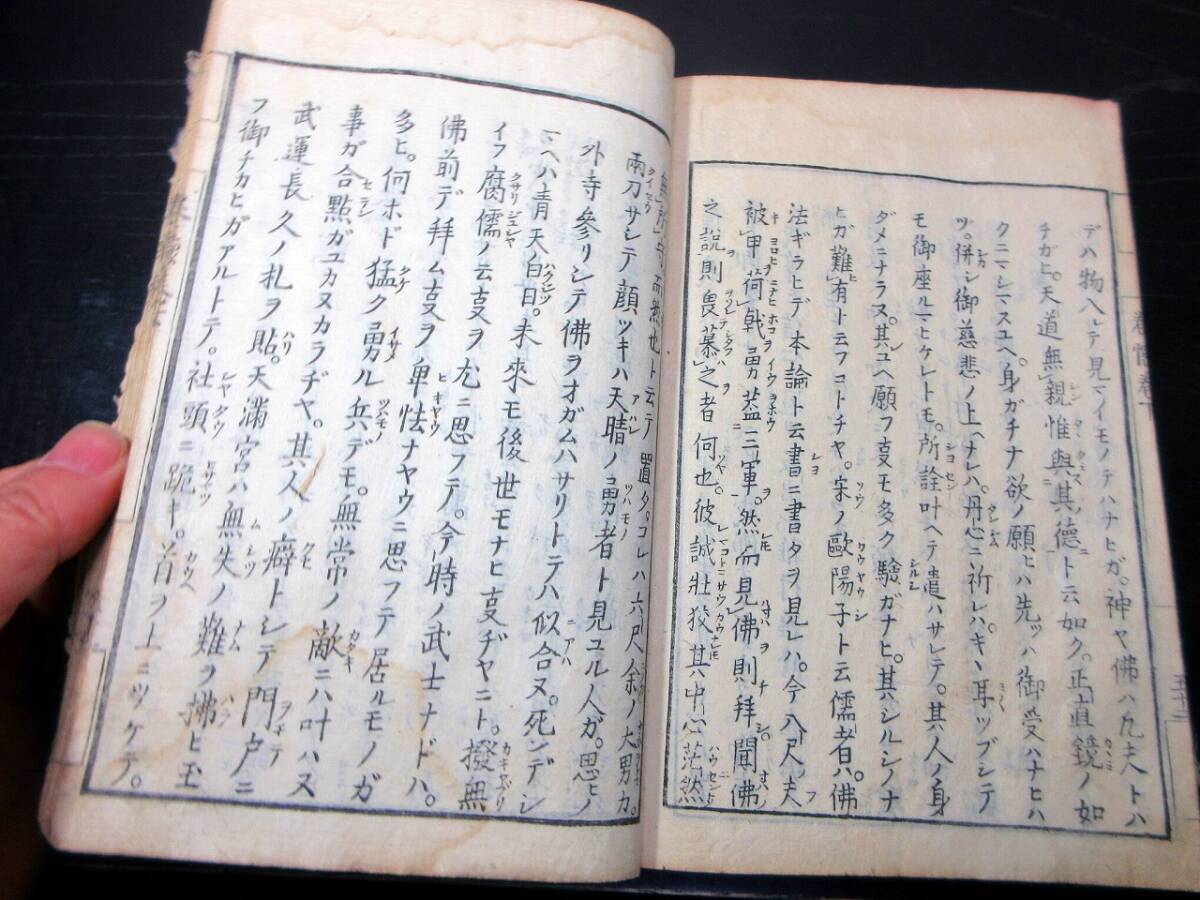 デハ物入レテ見マイモノテハナヒガ。神ヤ佛ハ凡夫トハ
チガヒ。天道無親惟與其德ト云如ク。正直鏡ノ如
クニマシマスユヘ。身ガチナ欲ノ願ヒハ先ツハ御受ハナヒハ
ツ。併シ御慈悲ノ上ヘナレハ。丹心ニ祈レハキヽ耳ツブシテ
モ御座ルマヒケレトモ。所詮叶ヘテ遣ハサレテ。其人ノ身
ダメニナラヌ。其ユヘ願フ叓モ多ク驗ガナヒ。其ハシルシノナ
ヒガ難有ト云フコトチヤ。宋ノ歐陽子ト云儒者ハ。佛
法ギラヒデ本論ト云書ニ書タヲ見レハ。今八尺ノ夫
被甲荷戟勇蓋三軍。然而見佛則拜聞佛
之說則畏慕之者何也。彼誠壯狡其中心茫然
無所守而然也ト云テ置タ。コレハ六尺余ノ大男カ。
兩刀サシテ顔ツキハ天晴ノ勇者ト見ユル人ガ。思ヒノ
外寺參リシテ佛ヲオガムハサリトテハ似合ヌ。死ンデシ
マヘハ青天ノ白日。未來モ後世モナヒ叓ヂヤニト。撥無
イフ腐儒ノ云叓ヲ尤ニ思フテ。今時ノ武士ナドハ。
佛前デ拜ム叓ヲ卑怯ナヤウニ思フテ居ルモノガ
多ヒ。何ホド猛ク勇ル兵デモ。無常ノ敵ニハ叶ハヌ
事ガ合點ガユカヌカラヂヤ。其人ノ癖トシテ門戸ニ
武運長久ノ札ヲ貼。天滿宮ハ無失ノ難ヲ拂ヒ玉
フ御チカヒガアルトテ。社頭ニ跪キ。首ヲ土ニツケテ。